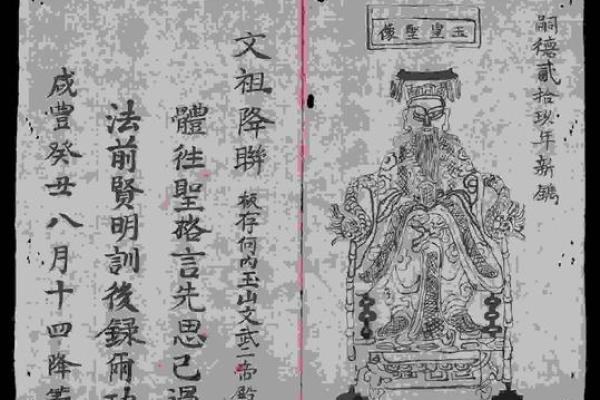 嗣德貳拾玖年新鐫
玉皇聖像
文祖降聯 板存何内玉山文武二帝殿
體徃聖格言先思己過
法前賢明訓後録爾功
咸豐癸丑八月十四降筆